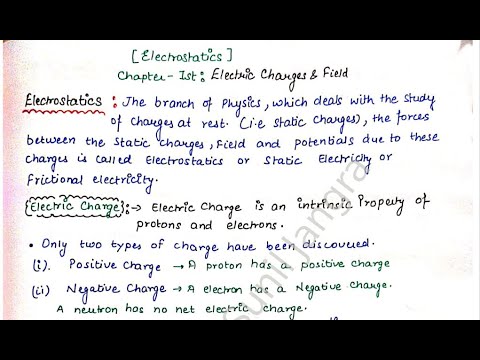 [Electrostatics]
Chapter-Ist: Electric Charges & Field
Electrostatics : The branch of Physics, which deals with the study
of charges at rest. (i.e static charges), the forces
between the static charges, field and potentials due to these
charges is called Electrostatics or Static Electricity or
Frictional electricity.
Electric Charge :→ Electric Charge is an intrinsic Property of
protons and electrons.
• Only two types of charge have been discovered.
(i). Positive Charge → A proton has a positive charge
(ii) Negative Charge → A electron has a Negative charge.
A neutron has no net electric charge.
Sunil Jangra